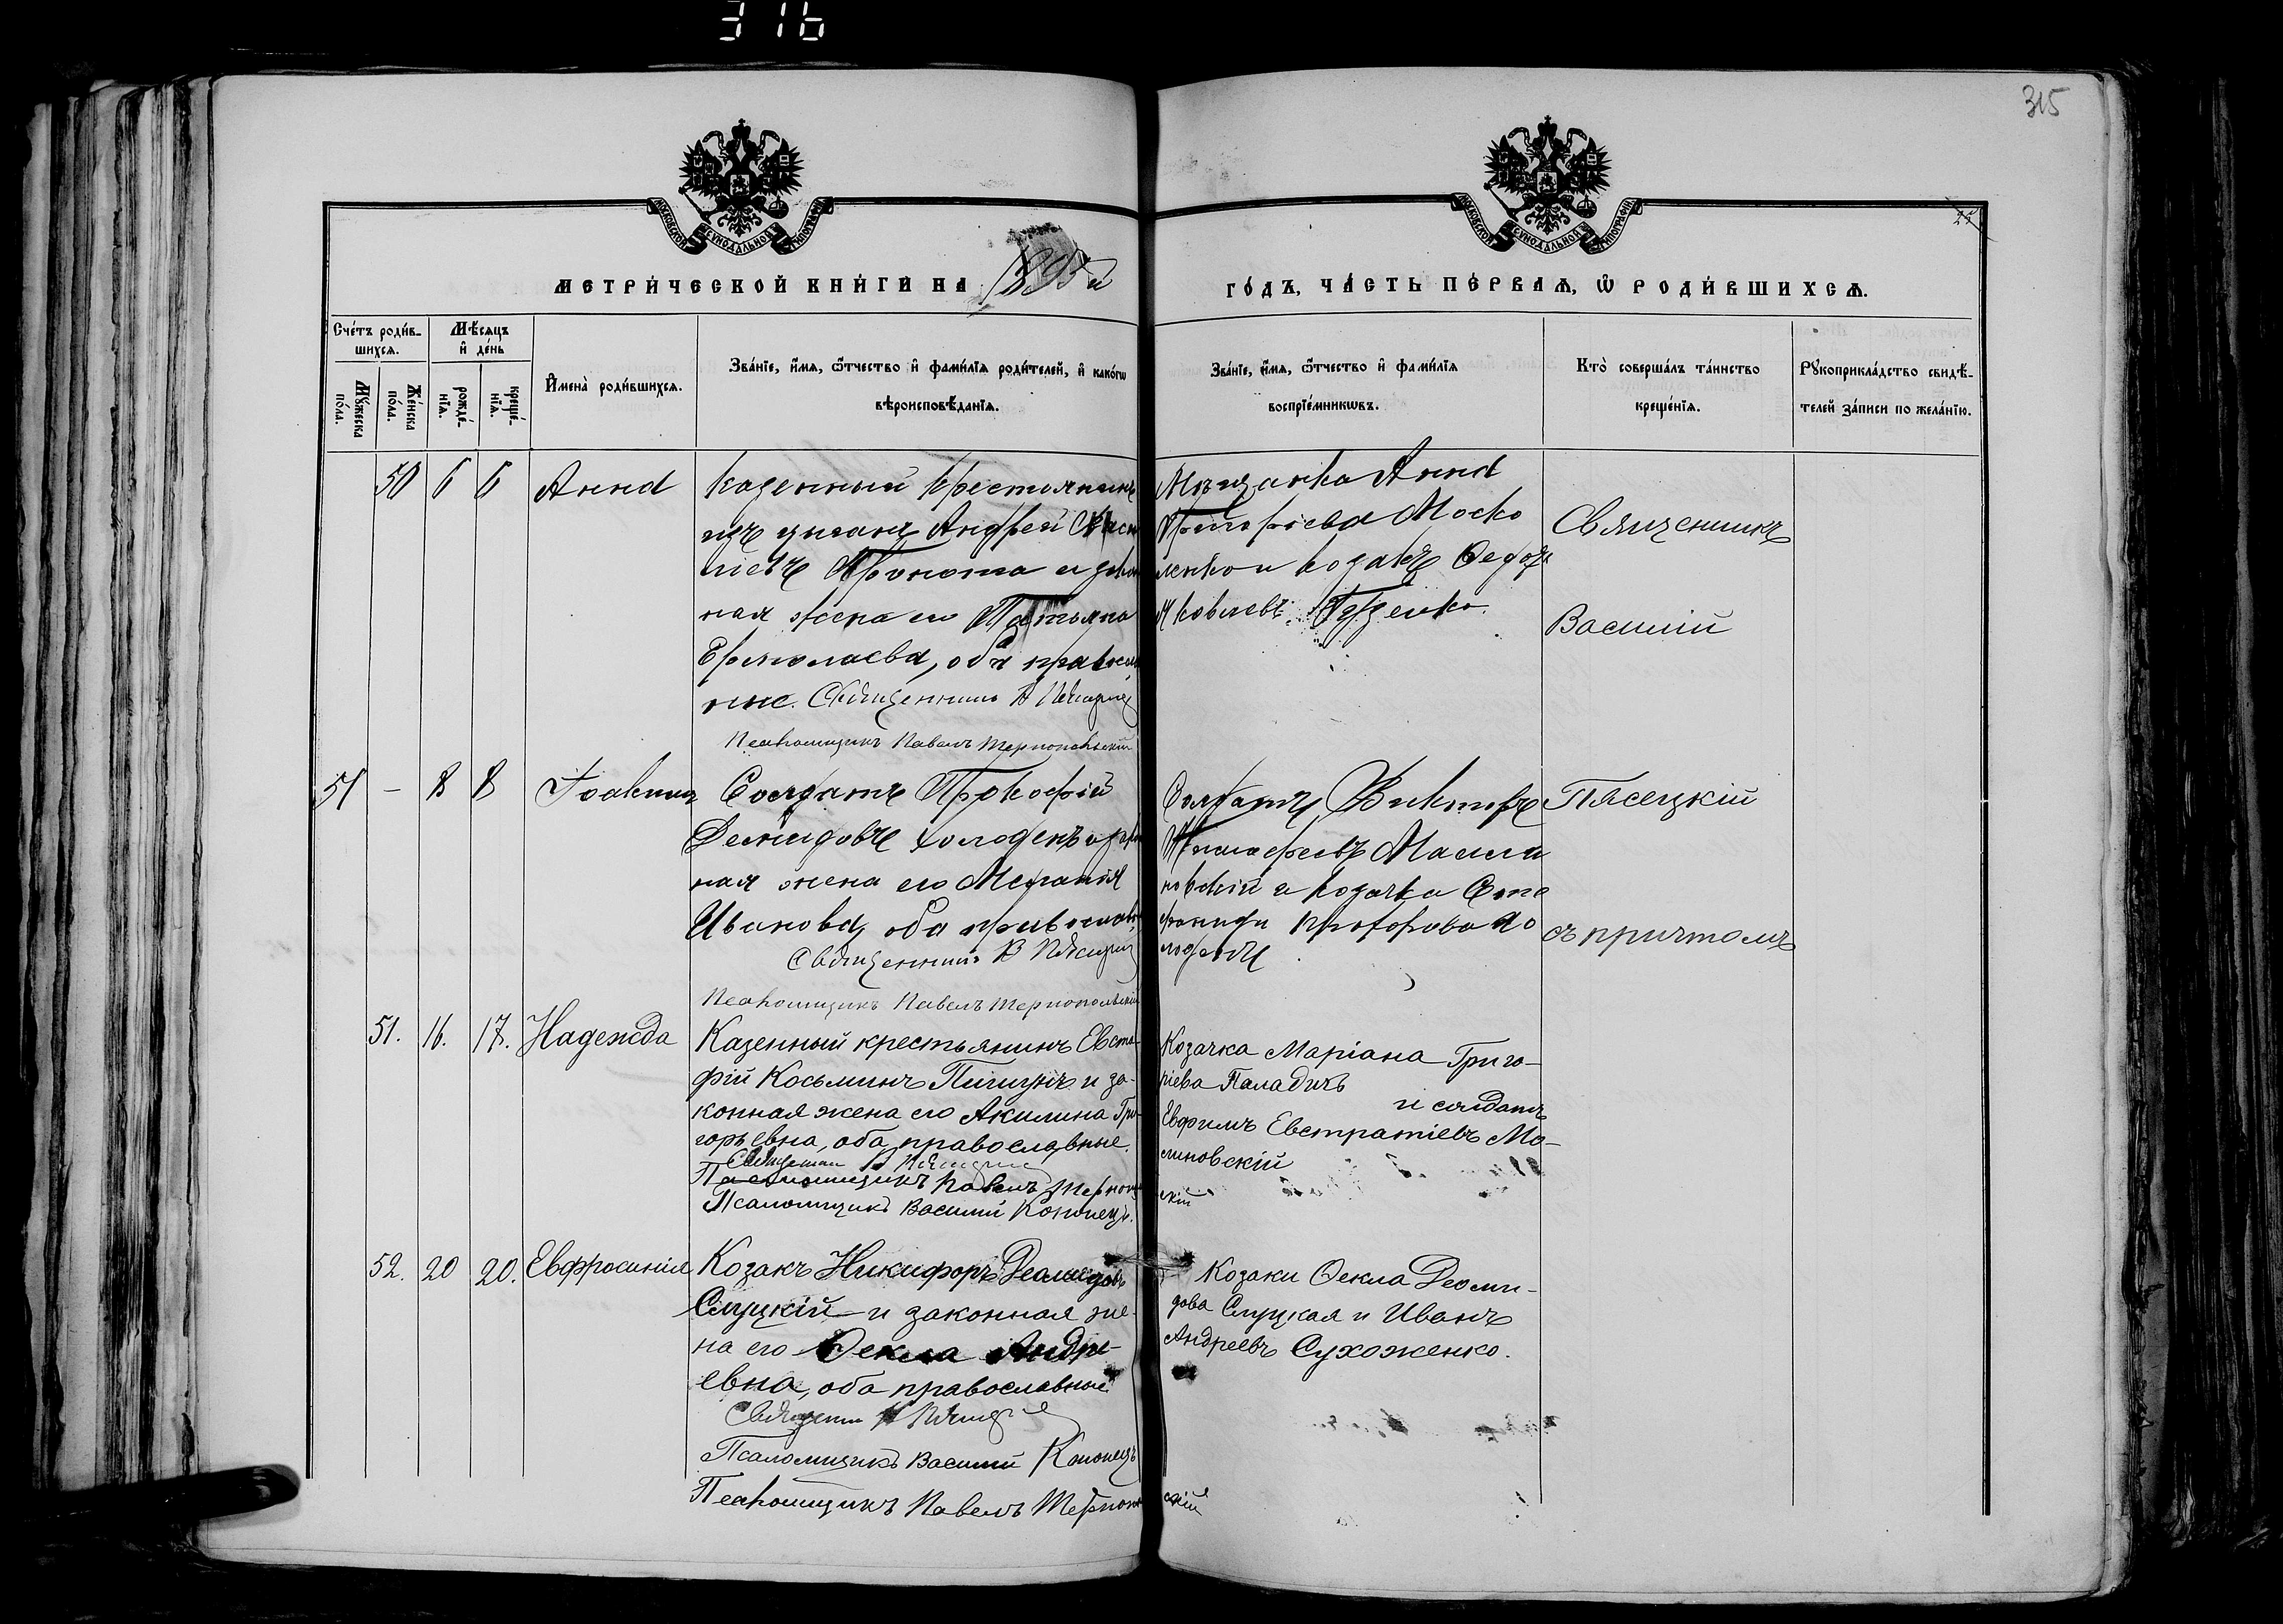 316
315
25
МОСКОВСКОЙ СѴНОДАЛЬНОЙ ТИПОГРАФІИ
МОСКОВСКОЙ СѴНОДАЛЬНОЙ ТИПОГРАФІИ
МЕТРИ́ЧЕСКОЙ КНИ́ГИ НА 1895й
ГО́ДЪ, ЧА́СТЬ ПЕ́РВАѦ, Ѽ РОДИ́ВШИХСѦ.
Сче́тъ роди́в-
шихсѧ.
Мꙋ́жеска
по́ла.
Же́нска
по́ла.
Мѣ́сѧцъ
и҆ де́нь
рожде́-
нїѧ.
креще́-
нїѧ.
И҆мена̀ роди́вшихсѧ.
Зва́нїе, и҆́мѧ, ѻ҆́тчество и҆ фами́лїѧ роди́телей, и҆ како́гѡ
вѣроисповѣ́данїѧ.
Зва́нїе, и҆́мѧ, ѻ҆́тчество и҆ фами́лїѧ
воспрїе́мникѡвъ.
Кто̀ соверша́лъ та́инство
креще́нїѧ.
Рꙋкоприкла́дство свидѣ́-
телей за́писи по жела́нїю.
50 6 6 Анна
Казенный крестьянинъ
изъ цыганъ Андрей
и зако
ная жена его Татьяна
Ермолаева, оба правосла
ные. Священникъ В Пясецкій
Псаломщикъ Павелъ Тернопольскій
Мѣщанка Анна
Григорьева Моско
ленко и козакъ Ѳеодоръ
Яковлевъ Гуценко.
Священникъ
Василій
Пясецкій
съ причтомъ
51 – 8 8 Іоакимъ
Солдатъ Прокофій
Демидовъ Холоденъ и зако
ная жена его Меланія
Иванова, оба православ.
Священникъ В Пясецкій
Псаломщикъ Павелъ Тернопольскій
Солдатъ Викторъ
Малли
новскій и козачка Сте
фанида Прохорова Хо
лоденъ
51. 16. 17. Надежда
Казенный крестьянинъ Евста-
фій Косьминъ Пищунъ и за-
конная жена его Акилина Гри-
горьевна, оба православные.
Священникъ В Пясецкій
Псаломщикъ Павелъ Тернопольскій
Псаломщикъ Василій Кононецъ.
Козачка Маріана Григо-
ріева Паладичъ
и солдатъ
Евфимъ Евстратіевъ Ма-
линовскій
52. 20 20. Евфросинія
Козакъ Никифоръ Деомидовъ
Слуцкій и законная же-
на его Ѳекла Андре-
евна, оба православные
Священникъ В Пясецкій
Псаломщикъ Василій Кононецъ
Псаломщикъ Павелъ Тернопольскій
Козаки Ѳекла Деоми-
дова Слуцкая и Иванъ
Андреевъ Сухоженко.